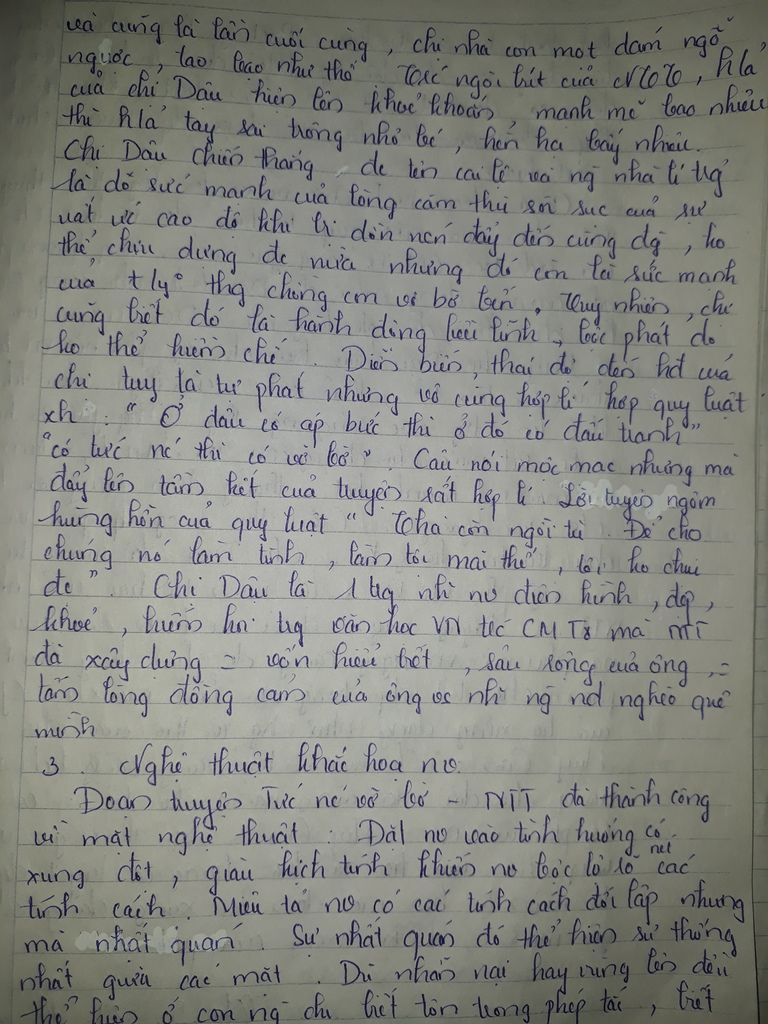 và cũng là lần cuối cùng, chị nhà con một dám ngỗ
ngược, táo bạo như thế. Dưới ngòi bút của NTT,
của chị Dậu hiện lên khoẻ khoắn, mạnh mẽ bao nhiêu
thì h/ả tay sai trông nhỏ bé, hèn hạ bấy nhiêu.
Chị Dậu chiến thắng đc tên cai lệ và ng nhà lí trg
là do sức mạnh của lòng căm thù sôi sục của sự
uất ức cao độ khi bị dồn nén đẩy đến cùng, ko
thể chịu đựng đc nữa nhưng đó còn là sức mạnh
của thg chồng con vô bờ bến. Tuy nhiên, chị
cũng biết đó là hành động liều lĩnh, bộc phát do
ko thể kiềm chế. Diễn biến, thái độ đến hđ của
chị tuy là tự phát nhưng vô cùng hợp lí hợp quy luật
xh: "Ở đâu có áp bức thì ở đó có đấu tranh"
"có tức nc thì có vỡ bờ". Câu nói mộc mạc nhưng mà
đẩy lên tầm kết của truyện rất hợp lí. Lời tuyên ngôn
hùng hồn của quy luật "Thà còn ngồi tù. Để cho
chúng nó làm tình, làm tội mãi thế, tôi ko chịu
đc". Chị Dậu là 1 trg nhì nv điển hình, đẹp,
khoẻ, hiếm hoi trg văn học VN trc CMT8 mà NTT
đã xây dựng = vốn hiểu biết, sâu rộng của ông, =
tấm lòng đồng cảm của ông vs nhì ng nd nghèo quê
mình
3. Nghệ thuật khắc hoạ nv.
Đoạn truyện Tức nc vỡ bờ - NTT đã thành công
về mặt nghệ thuật: Đặt nv vào tình huống có
xung đột, giàu kịch tính khiến nv bộc lộ rõ nét các
tính cách. Miêu tả nv có các tính cách đối lập nhưng
mà nhất quán. Sự nhất quán đó thể hiện sự thống
nhất giữa các mặt. Dù nhẫn nại hay vùng lên đều
thể hiện ở con ng chị biết tôn trọng phép tắc, biết